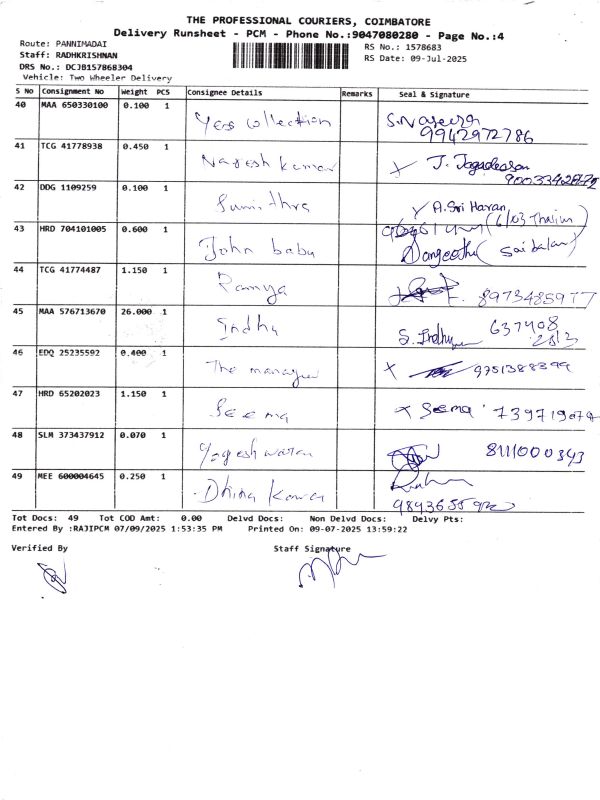 THE PROFESSIONAL COURIERS, COIMBATORE
Delivery Runsheet - PCM - Phone No.:9047080280 - Page No.:4
Route: PANNIMADAI
RS No.: 1578683
Staff: RADHKRISHNAN
RS Date: 09-Jul-2025
DRS No.: DCJB157868304
Vehicle: Two Wheeler Delivery
S No Consignment No Weight PCS Consignee Details Remarks Seal & Signature
40 MAA 650330100 0.100 1 Yess Collection S.Nazeera
9942972786
41 TCG 41778938 0.450 1 Nagesh Kumar X J. Jagadeesan
42 DDG 1109259 0.100 1 Sumithra A.Sri Haran
43 HRD 704101005 0.600 1 John babu Sangeetha
44 TCG 41774487 1.150 1 Ramya 8973485977
45 MAA 576713670 26.000 1 Indhu S. Indhu 637408
2813
46 EDQ 25235592 0.400 1 The manager X 9751388399
47 HRD 65202023 1.150 1 Seema X Seema
48 SLM 373437912 0.070 1 Yogeshwaran 8111000343
49 MEE 600004645 0.250 1
Tot Docs: 49 Tot COD Amt: 0.00 Delvd Docs: Non Delvd Docs: Delvy Pts:
Entered By :RAJIPCM 07/09/2025 1:53:35 PM Printed On: 09-07-2025 13:59:22
Verified By Staff Signature